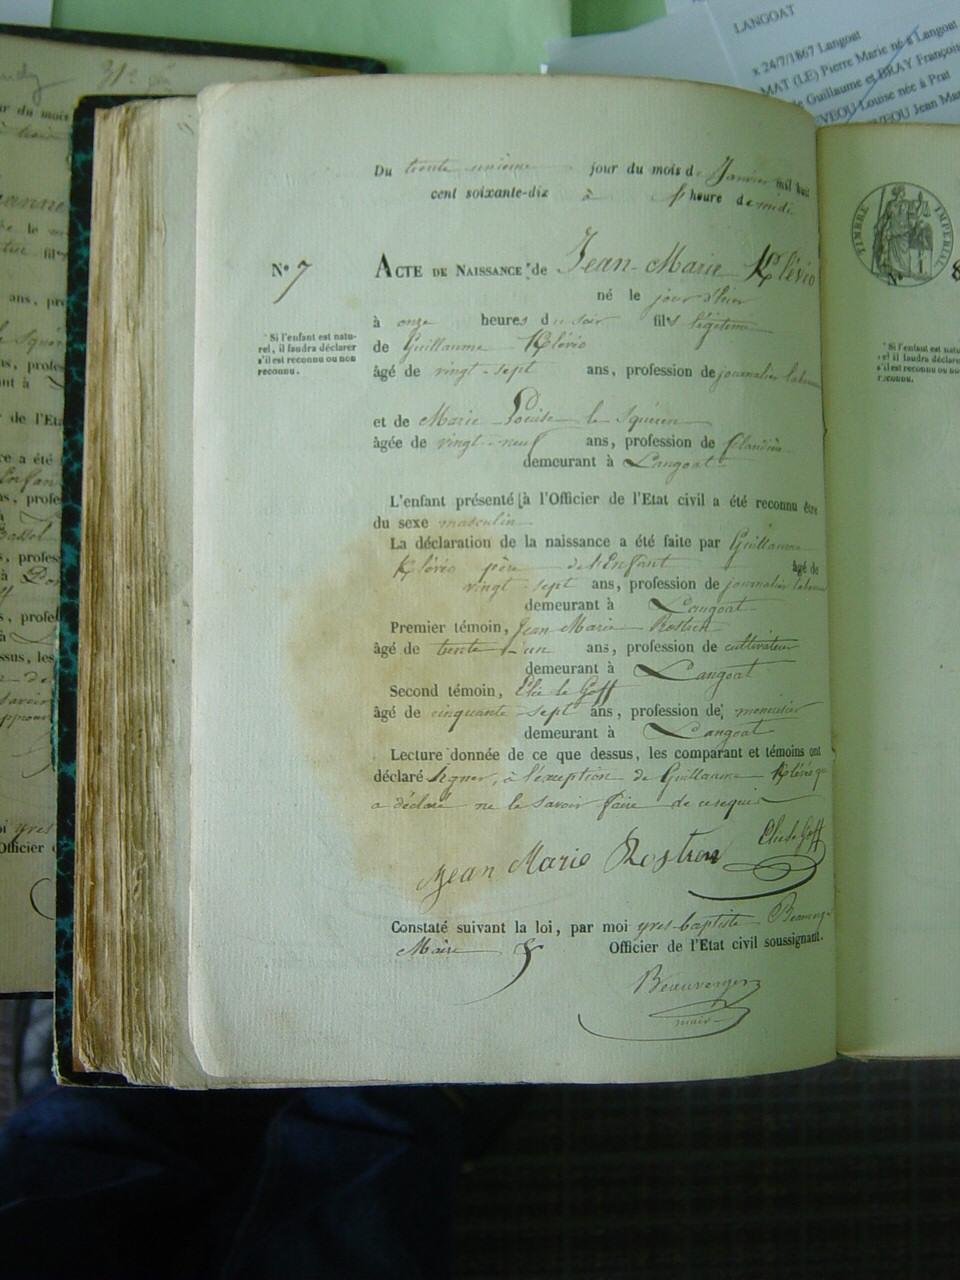 LANGOAT
x 24/7/1867 Langoat
MAT (LE) Pierre Marie né à Langoat
Guillaume et BRAY François
Louise née à Prat
Jean Mar
Du trente unième jour du mois de Janvier mil huit
cent soixante-dix à heure de midi
N° 7 ACTE DE NAISSANCE * de Jean-Marie Klévéo
né le jour d'hier
à onze heures du soir fils légitime
de Guillaume Klévéo
âgé de vingt-sept ans, profession de journalier
* Si l'enfant est natu-
rel, il faudra déclarer
s'il est reconnu ou non
reconnu.
et de Marie Louise le Squéren
âgée de vingt-neuf ans, profession de filandière
demeurant à Langoat
L'enfant présenté à l'Officier de l'Etat civil a été reconnu être
du sexe masculin
La déclaration de la naissance a été faite par Guillaume
Klévéo père de l'Enfant âgé de
vingt-sept ans, profession de journalier
demeurant à Langoat
Premier témoin, Jean Marie Rostren
âgé de trente-un ans, profession de cultivateur
demeurant à Langoat
Second témoin, Elie le Goff
âgé de cinquante-sept ans, profession de menuisier
demeurant à Langoat
Lecture donnée de ce que dessus, les comparant et témoins ont
déclaré signer, à l'exception de Guillaume Klévéo qui
a déclaré ne le savoir faire de ce requis
Jean Marie Rostren Elie le Goff
Constaté suivant la loi, par moi yves-baptiste Beauverger
Maire Officier de l'Etat civil soussigné.
Beauverger
maire
TIMBRE IMPERIAL
N° 8
* Si l'enfant est natu
rel, il faudra déclare
s'il est reconnu ou no
reconnu.